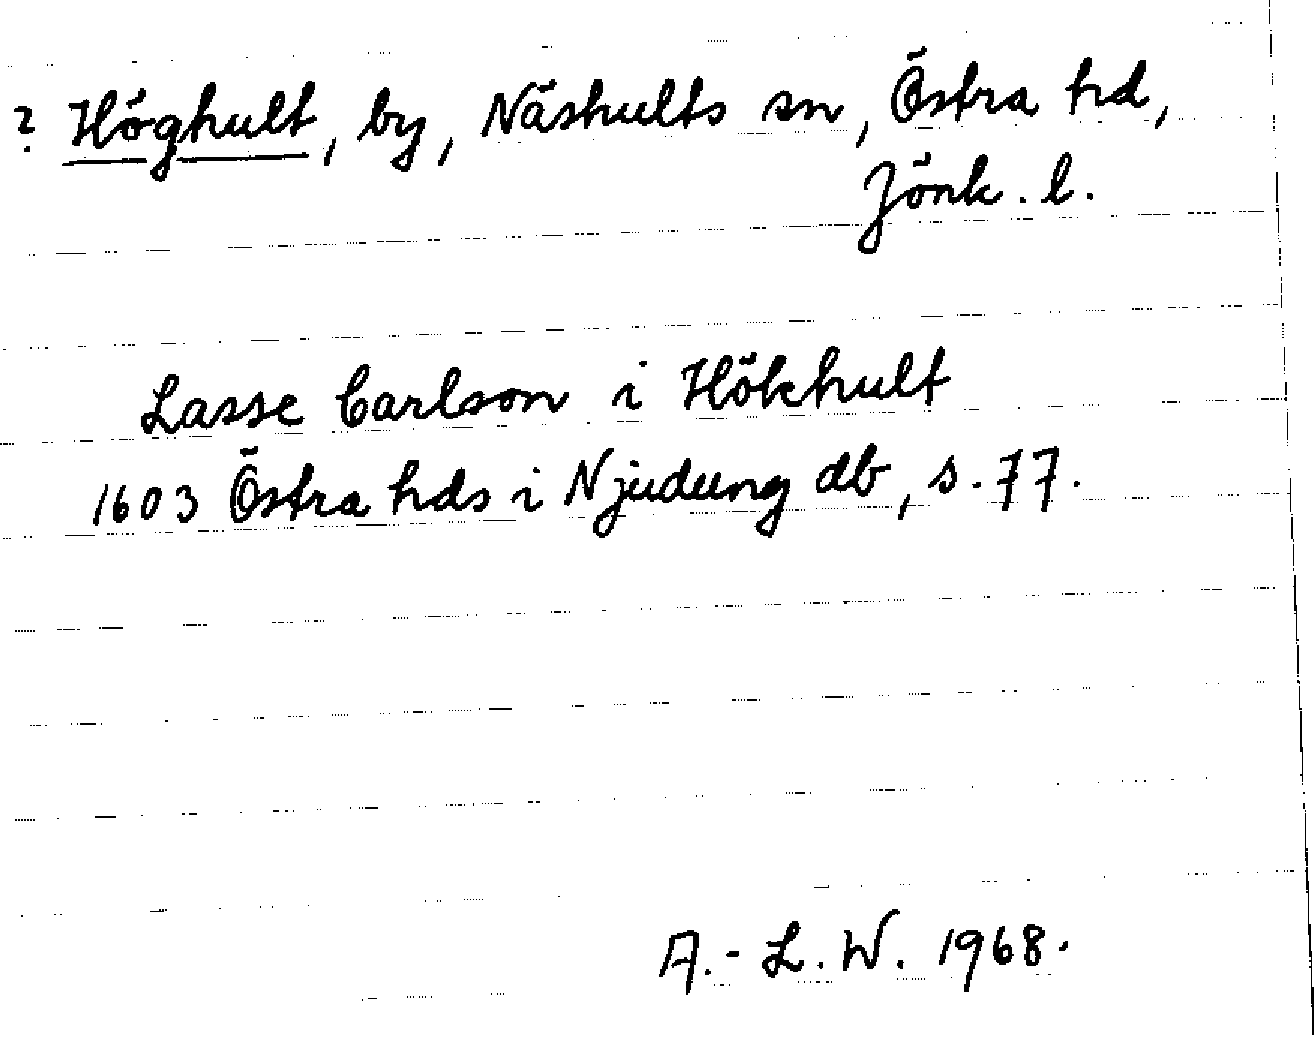 ? Höghult, by, Näshults sn, Östra hd,
Jönk. l.
Lasse Carlson i Hökhult
1603 Östra hds i Njudung db, s. 77.
A.-L. W. 1968.